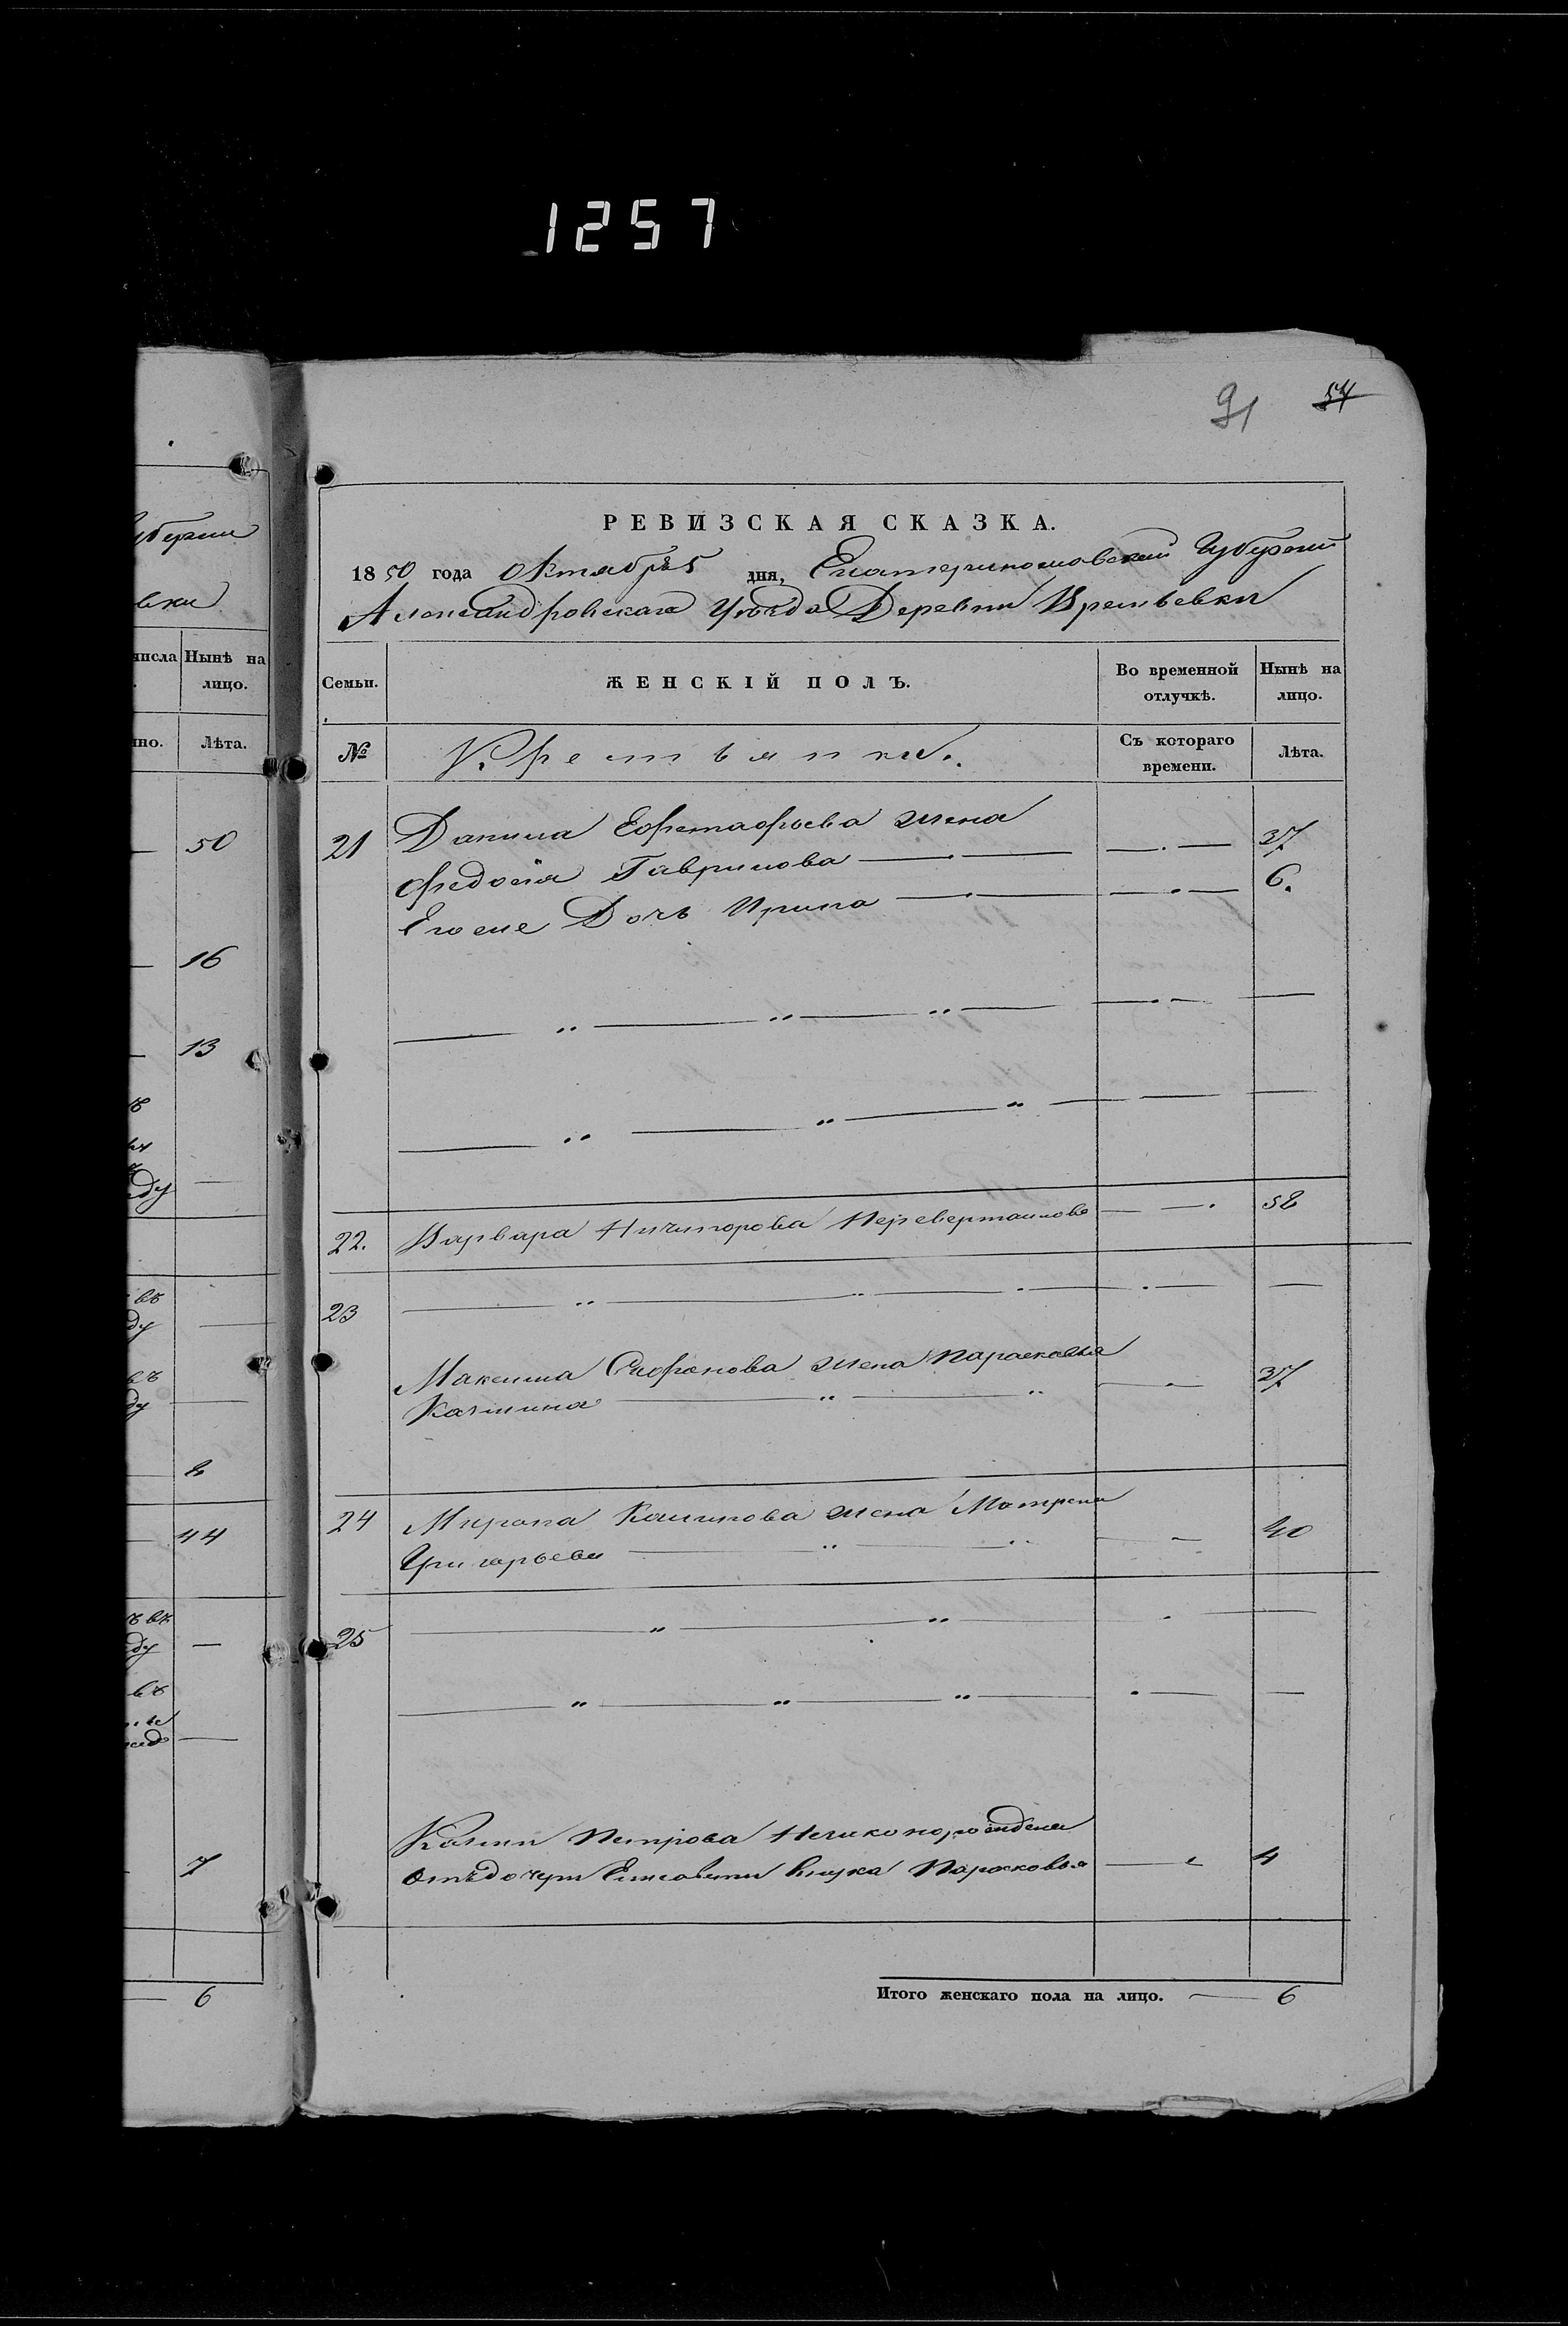 1257
91 54
РЕВИЗСКАЯ СКАЗКА.
1850 года Октября 5 дня, Екатеринославской Губернии
Александровскаго Уѣзда Деревни Времьевки
Семьи.
ЖЕНСКІЙ ПОЛЪ.
Во временной отлучкѣ.
Нынѣ на лицо.
№
Крестьянки.
Съ котораго времени.
Лѣта.
21 Данила Ефстафьева жена
Федосія Гаврилова 37
Егоже Дочь Ирина 6.
22. Варвара Ничипорова 58
23
Максима жена Парасковья
Калинина 37
24 Мирона Калинова жена Матрена
Григорьева 40
25
Петрова
Отъ дочери Елисаветы внука Парасковья 4
Итого женскаго пола на лицо. 6
Нынѣ на
лицо.
Лѣта.
50
16
13
44
7
6